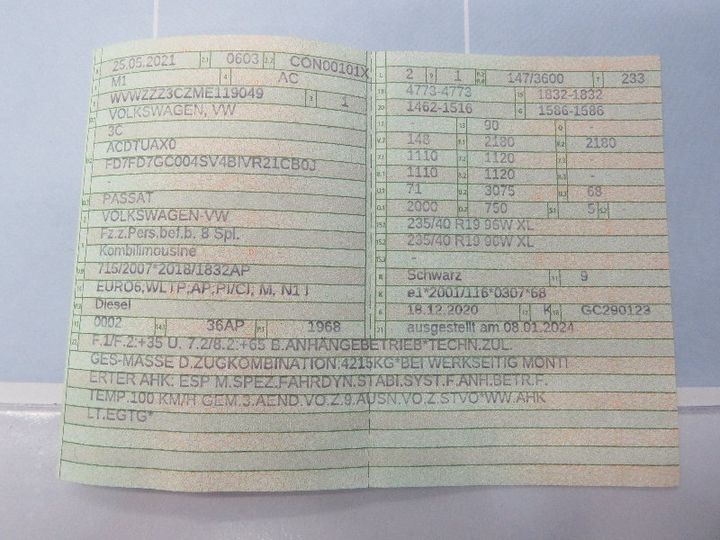 25.05.2021 0603 CON00101X
M1 AC
WVWZZZ3CZME119049 1
VOLKSWAGEN, VW
3C
ACDTUAX0
FD7FD7GC004SV4BIVR21CB0J
-
PASSAT
VOLKSWAGEN-VW
Fz.z.Pers.bef.b. 8 Spl.
Kombilimousine
715/2007*2018/1832AP
EURO6,WLTP,AP,PI/CI, M, N1 I
Diesel
0002 36AP 1968
L 2 9 1 147/3600 T 233
18 4773-4773 19 1832-1832
20 1462-1516 G 1586-1586
12 - 13 90 Q -
148 2180 2180
1110 1120 -
1110 1120 -
71 3075 68
2000 750 5 -
235/40 R19 96W XL
235/40 R19 96W XL
-
R Schwarz 11 9
K e1*2001/116*0307*68
6 18.12.2020 17 K GC290123
21 ausgestellt am 08.01.2024
22 F.1/F.2:+35 U. 7.2/8.2:+65 B.ANHÄNGEBETRIEB*TECHN.ZUL.
GES-MASSE D.ZUGKOMBINATION:4215KG*BEI WERKSEITIG MONTI
ERTER AHK: ESP M.SPEZ.FAHRDYN.STABI.SYST.F.ANH.BETR.F.
TEMP.100 KM/H GEM.3.AEND.VO.Z.9.AUSN.VO.Z.STVO*WW.AHK
LT.EGTG*